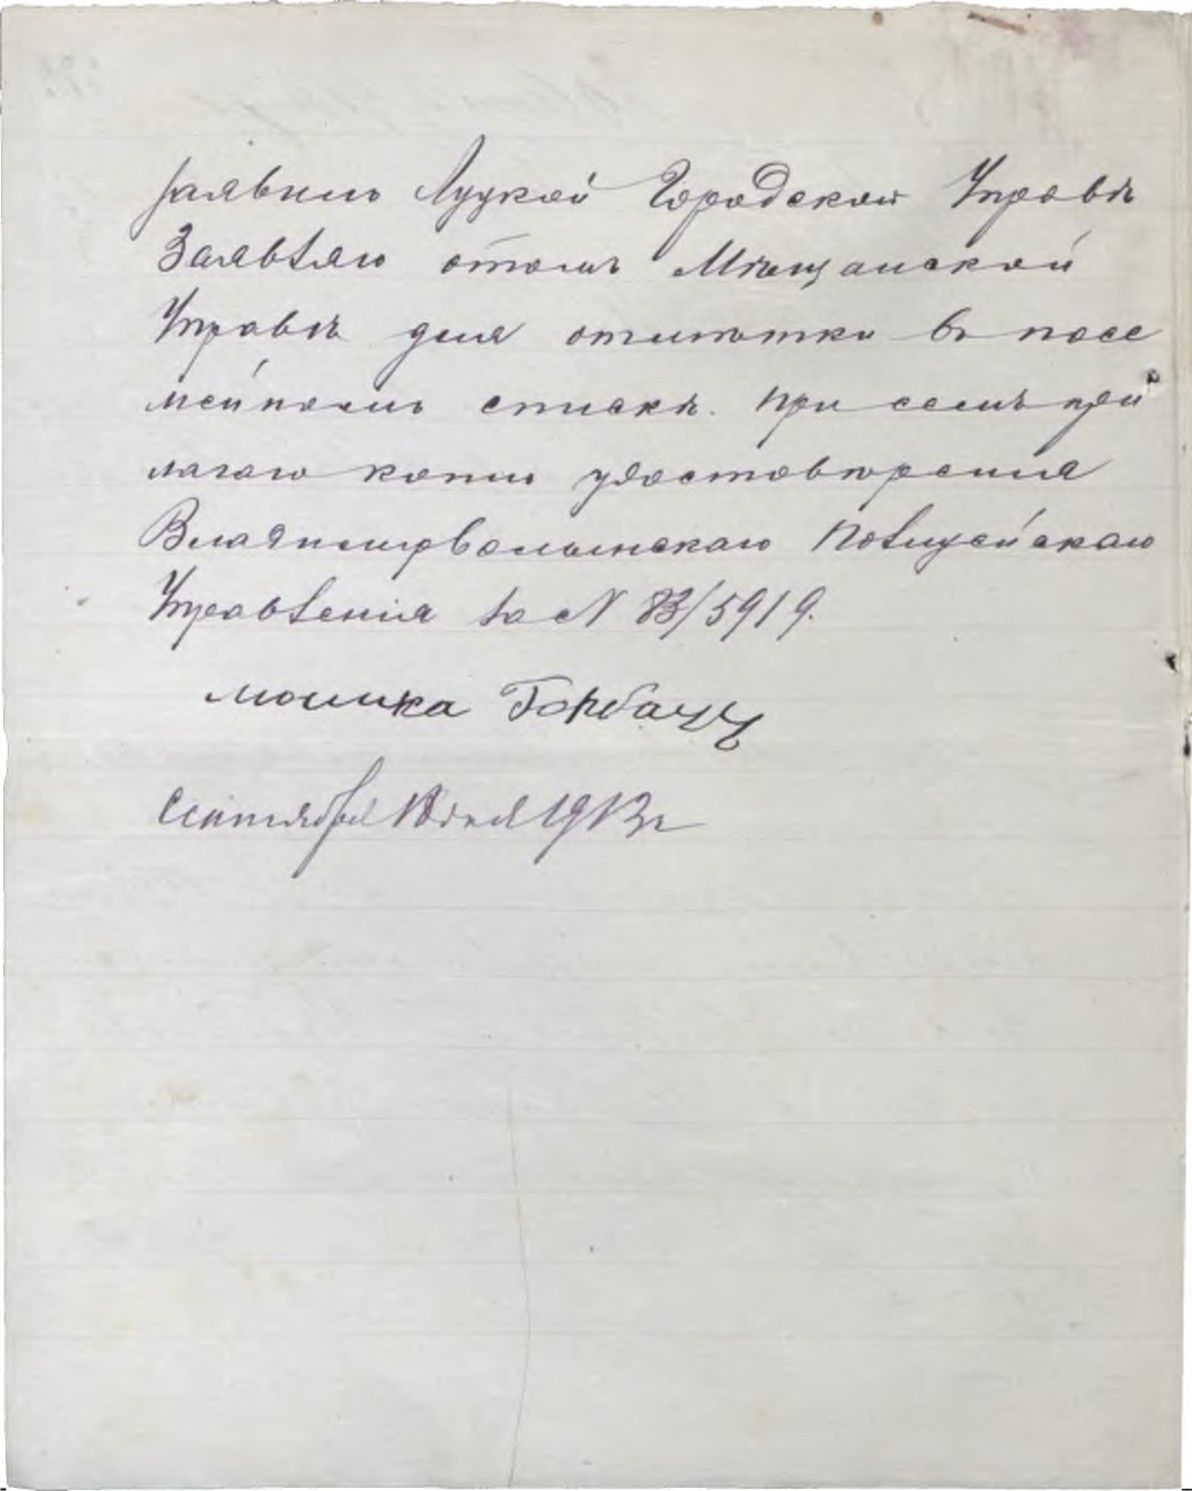 заявивъ Луцкой Городской Управѣ
Заявляю отомъ Мѣщанской
Управѣ для отмѣтки въ посе
мейномъ спискѣ. При семъ при
лагаю копию удостовѣрения
Владимирволынскаго Полицейскаго
Управленія за N 83/5919.
мошка Горбацъ
Сентября 18 дня 1913г